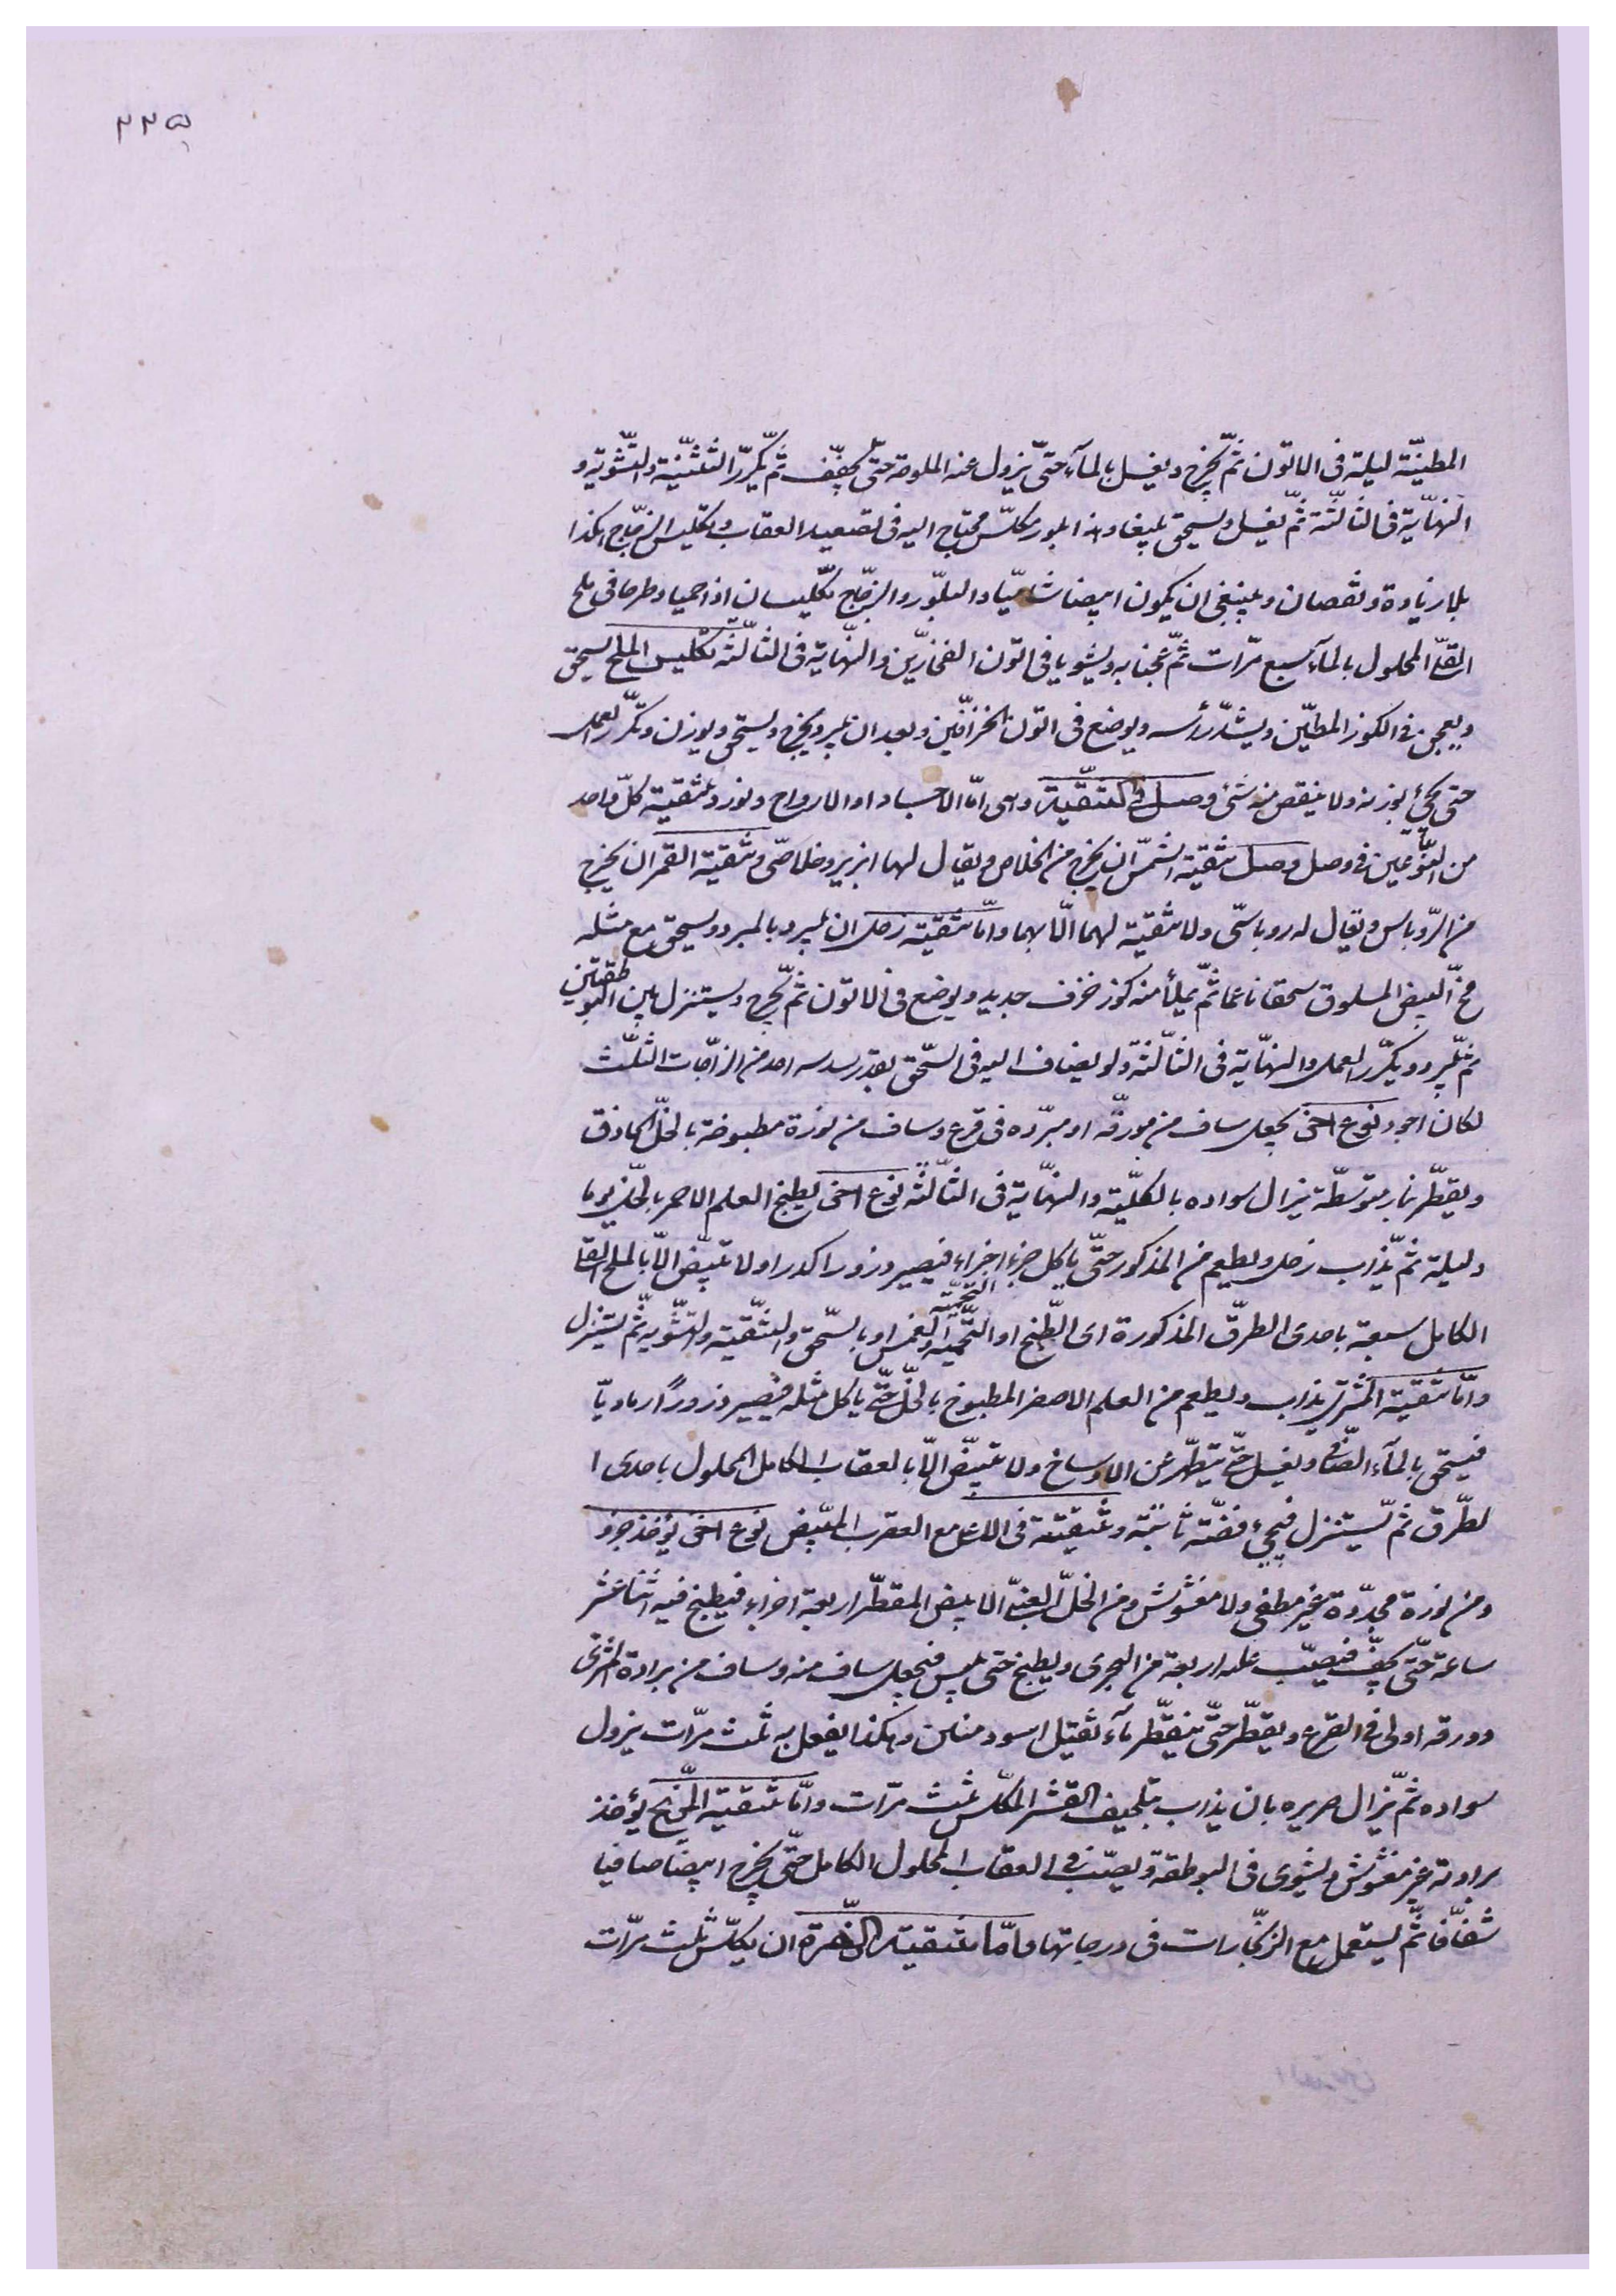 ٢٢٥
المطيّنة ليلة فى الاتون ثمّ يخرج ويغسل بالمآء حتّى يزول عنه الملوحة حتّى يجفّف ثمّ يكرّر التقنية والتّشوية و
النهاية فى الثالثة ثمّ يغسل ويسحق بليغا وهذا البور مكلّس محتاج اليه فى تصعيد العقاب وتكليس الزجّاج هكذا
بلا زيادة ونقصان وينبغى ان يكون ابيضا شاميّا والبلّور والزجّاج يكلّسان اذا احميا وطرحا فى ملح
القلى المحلول بالمآء سبع مرّات ثمّ عجنا به ويشويا فى اتون الفخّارين والنهاية فى الثالثة تكليس الملح يسحق
ويعجن فى الكوز المطيّن ويشدّ رأسه ويوضع فى اتون الخزّافين وبعد ان يبرد يخرج ويسحق ويوزن ويكرّر العمل
حتى يجئ بوزنه ولا ينقص منه شئ وصل فى التنقية وهى امّا الاجساد او الارواح ونورد تنقية كلّ واحد
من النّوعين فى وصل وصل تنقية الشمس ان يخرج من الخلاص ويقال لها ابريز وخلاصى وتنقية القمر ان يخرج
من الرّوباس ويقال له روباسى ولا تنقية لهما الّا بهما وامّا تنقية زحل ان يبرد بالمبرد ويسحق مع مثله
مخّ البيض المسلوق سحقا ناعما ثمّ يملأ منه كوز خزف جديد ويوضع فى الاتون ثمّ يخرج ويستنزل بين البوطقتين
ثمّ يبرد ويكرّر العمل والنهاية فى الثّالثة ولو يضاف اليه فى السّحق بقدر سدسه احد من الزّاجات الثلث
لكان اجود نوع اخى يجعل ساف من مورقه او مبرّده فى قرع وساف من نورة مطبوخة بالخلّ الحاذق
ويقطّر بنار متوسّطة يزال سواده بالكلّية والنهاية فى الثّالثة نوع اخى يطبخ العلم الاحمر بالخلّ يوما
وليلة ثمّ يذاب زحل ويطعم من المذكور حتّى ياكل جزء اجزاء فيصير ذرورا اكدرا ولا يبيّض الّا بالملح القلى
الكامل سبعة باحدى الطرق المذكورة اى الطّبخ او التّحمية والغمس او بالسّحق والتنقية والتّشوية ثمّ يستنزل
وامّا تنقية المشترى يذاب ويطعم من العلم الاصفر المطبوخ بالخلّ حتّى ياكل مثله فيصير ذرورًا رماديّا
فيسحق بالمآء الصّافى ويغسل حتّى يتطهّر عن الاوساخ ولا يبيّض الّا بالعقاب الكامل المحلول باحدى ا
لطّرق ثمّ يستنزل فيجئ فضّة ثابتة وتنقيته فى الاعلى مع العقرب المبيّض نوع اخى يؤخذ جزو
ومن نورة مجدّدة غير مطفى ولا مغشوش ومن الخلّ العنبى الابيض المقطّر اربعة اجزاء فيطبخ فيه اثنا عشر
ساعة حتّى يجفّ فيصبّ عليه اربعة من البحرى ويطبخ حتى يبس فيجعل ساف منه وساف من برادة المشترى
وورقه اولى فى القرع ويقطّر حتّى ينقطّر مآء ثقيل اسود منتن وهكذا يفعل به ثلث مرّات يزول
سواده ثمّ يزال صريره بان يذاب بتلحيف القشر المكلّس ثلث مرّات وامّا تنقية المرّيخ يؤخذ
برادته غير مغشوش ويشوى فى البوطقة ويصبّ فى العقاب المحلول الكامل حتّى يخرج ابيضا صافيا
شفّافا ثمّ يستعمل مع الزنجارات فى درجاتها وامّا تنقية الزّهرة ان يكلّس ثلث مرّات